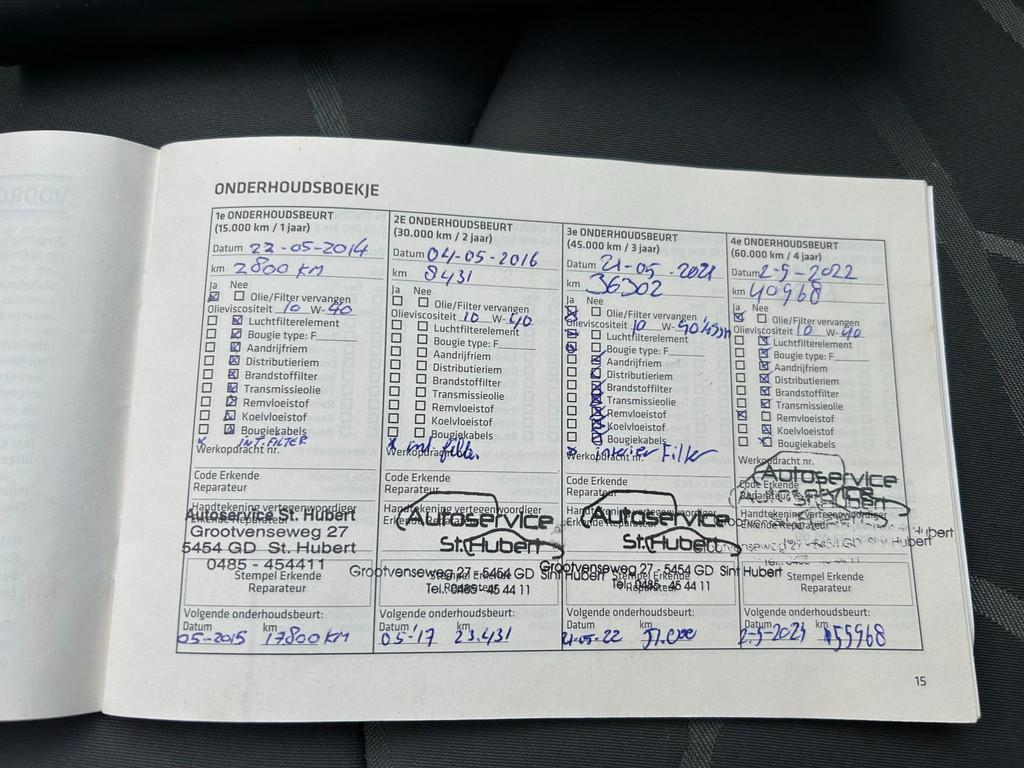 ONDERHOUDSBOEKJE
1e ONDERHOUDSBEURT
(15.000 km / 1 jaar)
Datum 22-05-2014
km 2800 KM
Ja Nee
Olie/Filter vervangen
Olieviscositeit 10 W-40
Luchtfilterelement
Bougie type: F
Aandrijfriem
Distributieriem
Brandstoffilter
Transmissieolie
Remvloeistof
Koelvloeistof
Bougiekabels
x INT. FILTER
Werkopdracht nr.
Code Erkende
Reparateur
Handtekening vertegenwoordiger
Erkende Reparateur
Autoservice St. Hubert
Grootvenseweg 27
5454 GD St. Hubert
0485 - 454411
Stempel Erkende
Reparateur
Volgende onderhoudsbeurt:
Datum km
05-2015 17800 KM
2E ONDERHOUDSBEURT
(30.000 km / 2 jaar)
Datum 04-05-2016
km 8431
Ja Nee
Olie/Filter vervangen
Olieviscositeit 10 W-40
Luchtfilterelement
Bougie type: F
Aandrijfriem
Distributieriem
Brandstoffilter
Transmissieolie
Remvloeistof
Koelvloeistof
Bougiekabels
x int. filt.
Werkopdracht nr.
Code Erkende
Reparateur
Handtekening vertegenwoordiger
Erkende Reparateur
Autoservice
St. Hubert
Grootvenseweg 27 - 5454 GD Sint Hubert
Stempel Erkende
Reparateur
Tel. 0485 - 45 44 11
Volgende onderhoudsbeurt:
Datum km
05-'17 23.431
3e ONDERHOUDSBEURT
(45.000 km / 3 jaar)
Datum 21-05-2021
km 36302
Ja Nee
Olie/Filter vervangen
Olieviscositeit 10 W-40
Luchtfilterelement
Bougie type: F
Aandrijfriem
Distributieriem
Brandstoffilter
Transmissieolie
Remvloeistof
Koelvloeistof
Bougiekabels
x interier Filter
Werkopdracht nr.
Code Erkende
Reparateur
Handtekening vertegenwoordiger
Erkende Reparateur
Autoservice
St. Hubert
Grootvenseweg 27 - 5454 GD Sint Hubert
Stempel Erkende
Reparateur
Tel. 0485 - 45 44 11
Volgende onderhoudsbeurt:
Datum km
21-05-22
4e ONDERHOUDSBEURT
(60.000 km / 4 jaar)
Datum 2-5-2022
km 40968
Ja Nee
Olie/Filter vervangen
Olieviscositeit 10 W-40
Luchtfilterelement
Bougie type: F
Aandrijfriem
Distributieriem
Brandstoffilter
Transmissieolie
Remvloeistof
Koelvloeistof
Bougiekabels
Werkopdracht nr.
Code Erkende
Reparateur
Autoservice
Handtekening vertegenwoordiger
Erkende Reparateur
Stempel Erkende
Reparateur
Volgende onderhoudsbeurt:
Datum km
55968
15